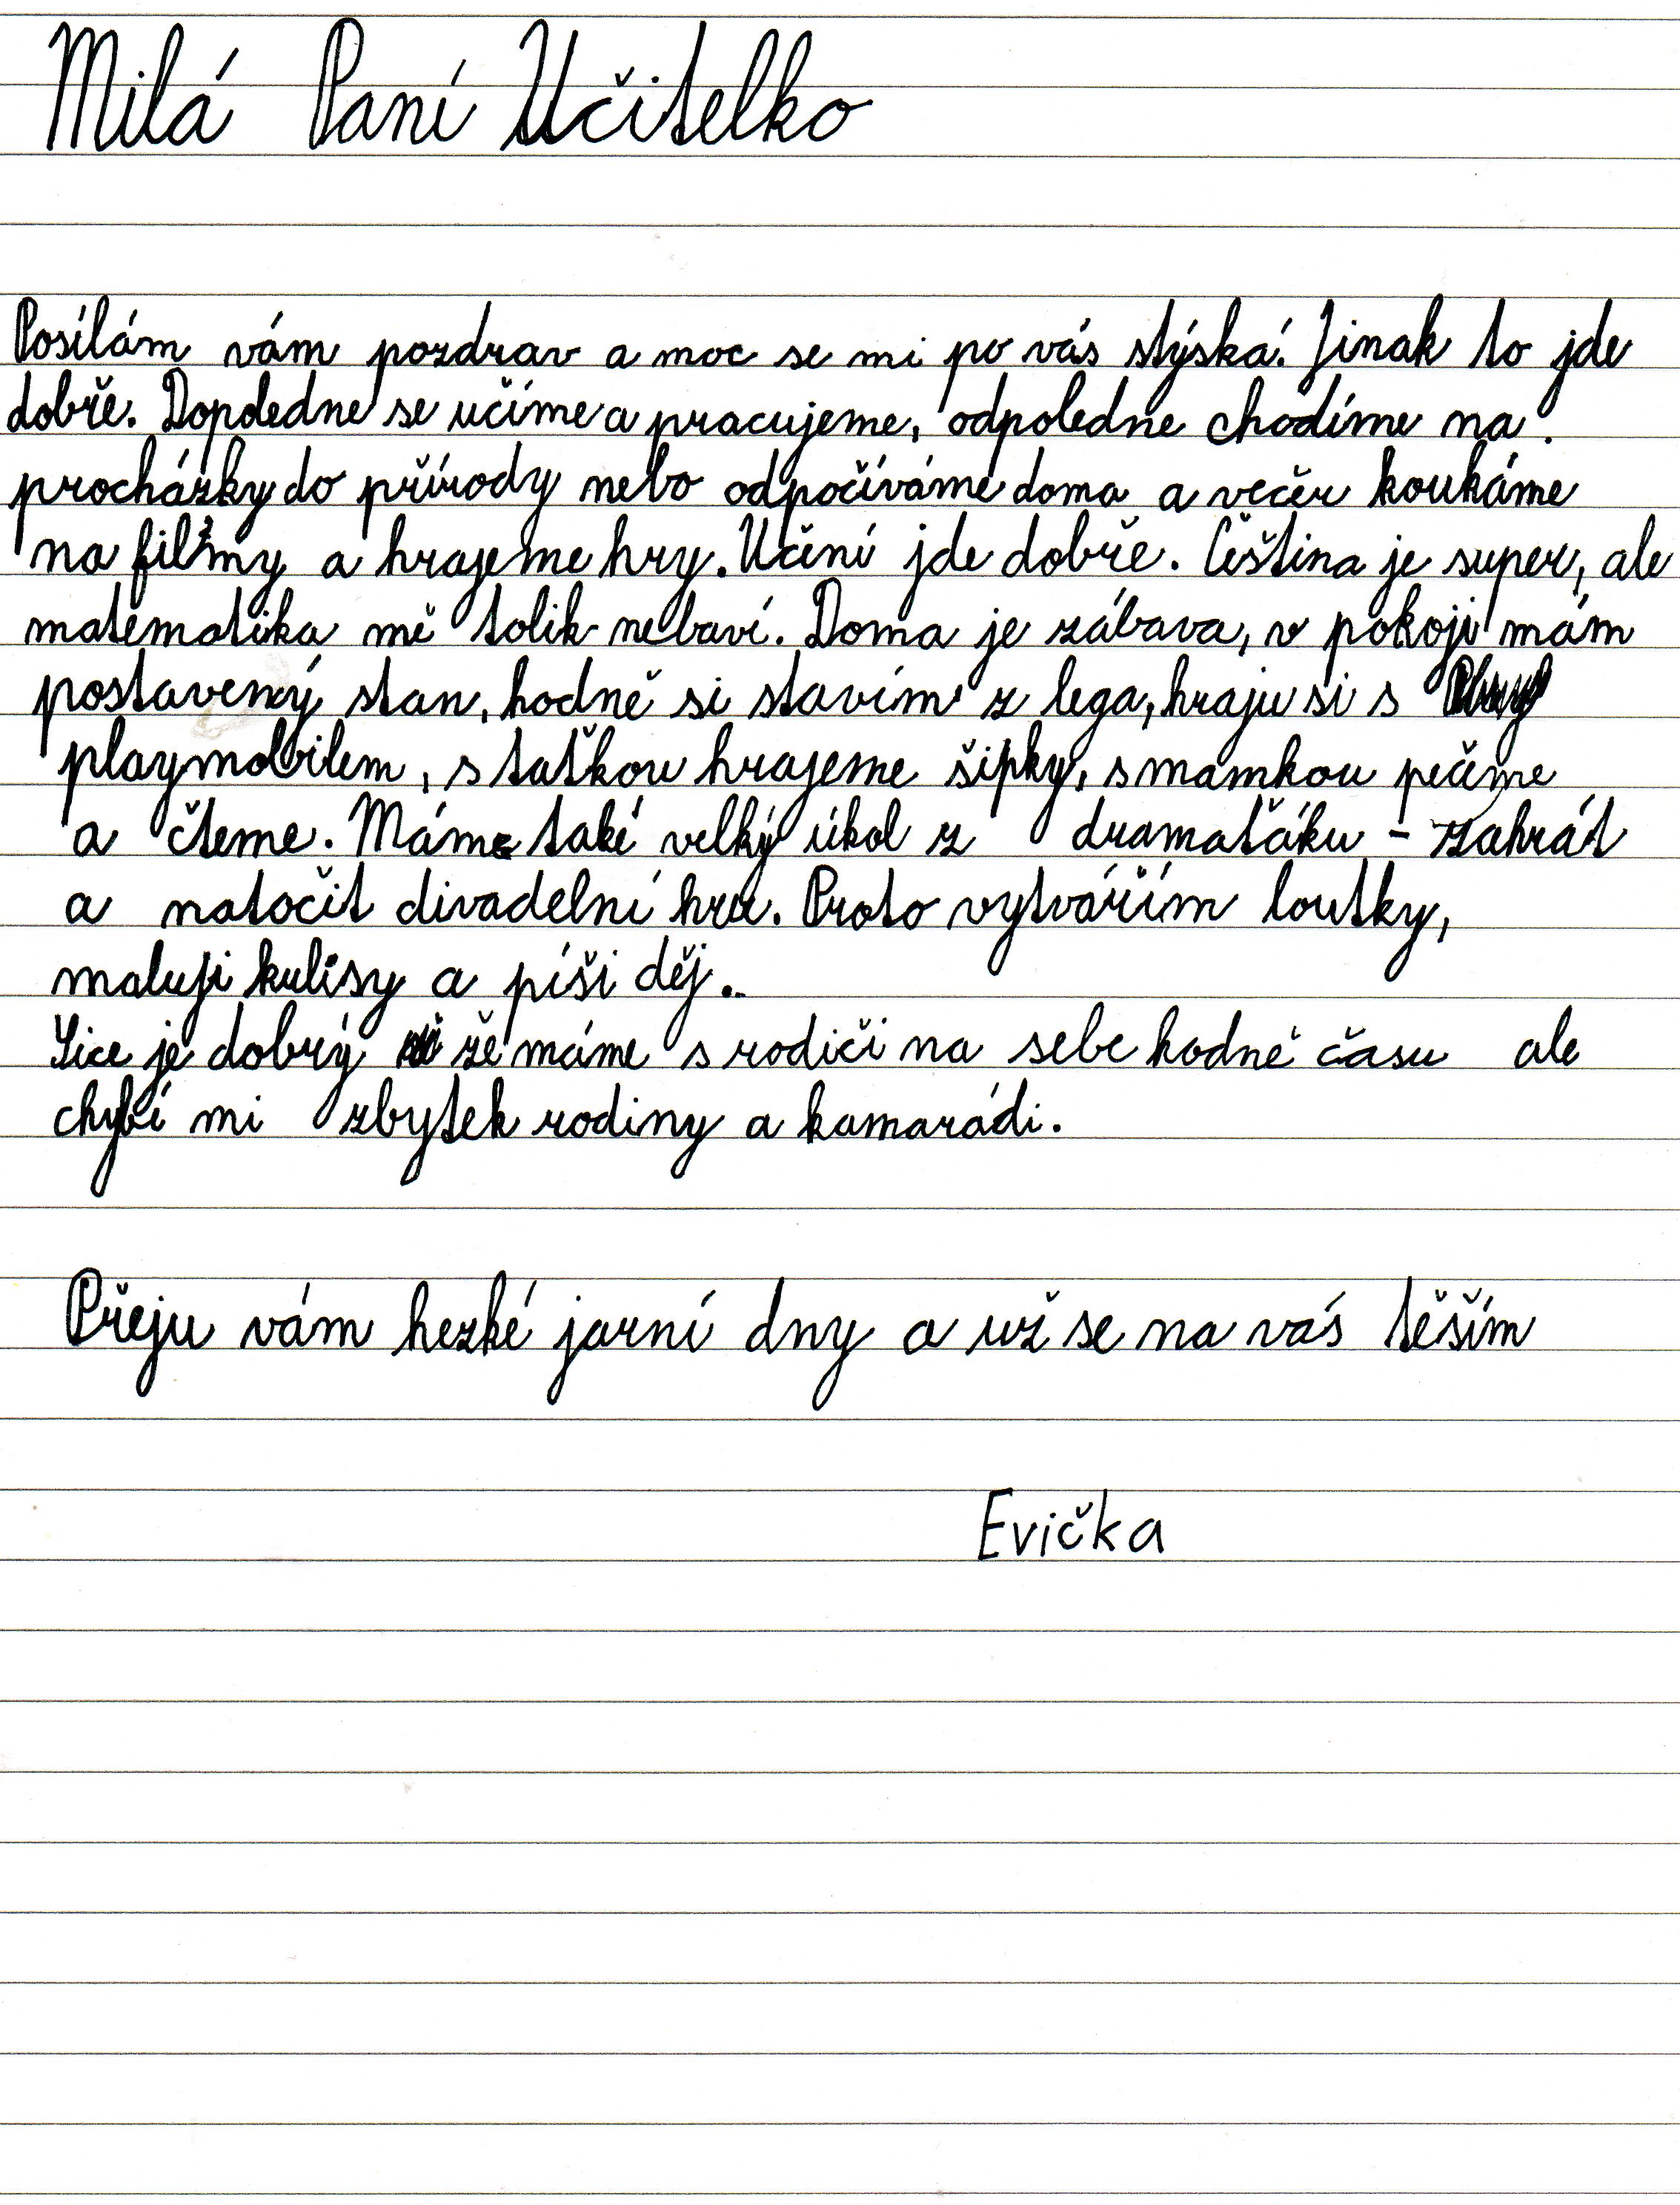 Milá Paní Učitelko
Posílám vám pozdrav a moc se mi po vás stýská. Jinak to jde
dobře. Dopoledne se učíme a pracujeme, odpoledne chodíme na
procházky do přírody nebo odpočíváme doma a večer koukáme
na filmy a hrajeme hry. Učení jde dobře. Čeština je super, ale
matematika mě tolik nebaví. Doma je zábava, v pokoji mám
postavený stan, hodně si stavím z lega, hraju si s
playmobilem, s taťkou hrajeme šipky, s mamkou pečeme
a čteme. Máme také velký úkol z dramaťáku - zahrát
a natočit divadelní hru. Proto vytvářím loutky,
maluji kulisy a píši děj..
Sice je dobrý že máme s rodiči na sebe hodně času ale
chybí mi zbytek rodiny a kamarádi.
Přeju vám hezké jarní dny a už se na vás těším
Evička